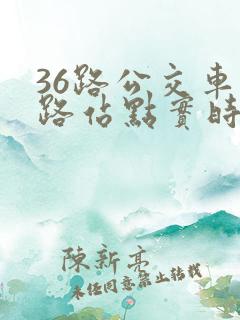 36路公交車
路佔點實時
陳新亮
未任同意禁止轉載